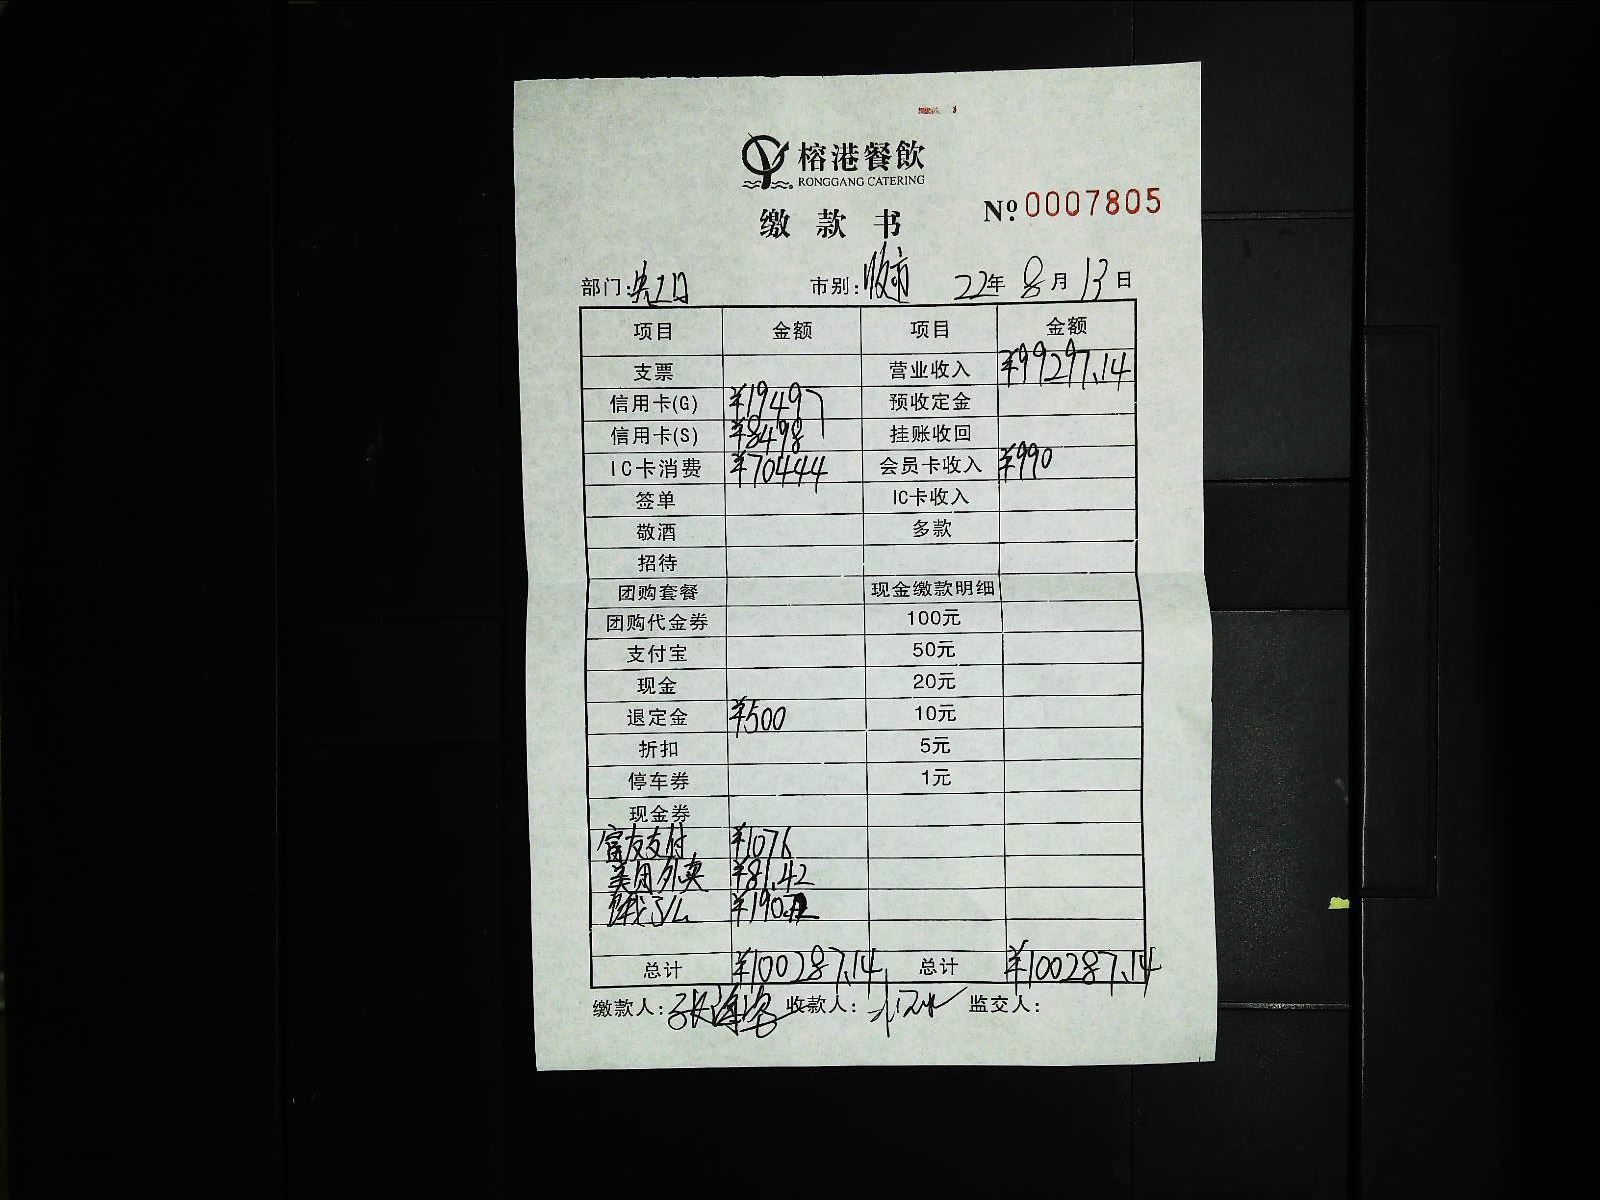 榕港餐飲
RONGGANG CATERING
缴 款 书
Nº 0007805
部门: 市别: 22年 8月 13日
项目 金额 项目 金额
支票 营业收入 ¥99297.14
信用卡(G) ¥19497 预收定金
信用卡(S) ¥8498 挂账收回
IC卡消费 ¥70444 会员卡收入 ¥990
签单 IC卡收入
敬酒 多款
招待
团购套餐 现金缴款明细
团购代金券 100元
支付宝 50元
现金 20元
退定金 ¥500 10元
折扣 5元
停车券 1元
现金券
富友支付 ¥1076
美团外卖 ¥81.42
饿了么 ¥190.72
总计 ¥100287.14 总计 ¥100287.14
缴款人: 收款人: 监交人: